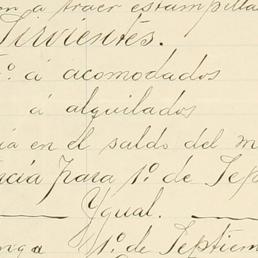 n á traer estampilla
Sirvientes.
º. á acomodados
á alquilados
ia en el saldo del m
ncia para 1º. de Sep
Ygual.
1º. de Septiem